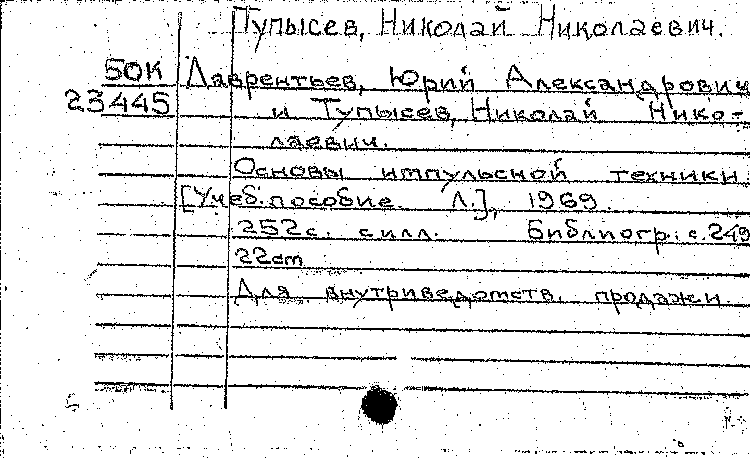 Тупысев, Николай Николаевич.
50К Лаврентьев, Юрий Александрович
23445 и Тупысев, Николай Нико-
лаевич.
Основы импульсной техники.
[Учеб. пособие. Л.], 1969.
252с. силл. Библиогр: с. 249
22cm
Для внутриведомств. продажи.